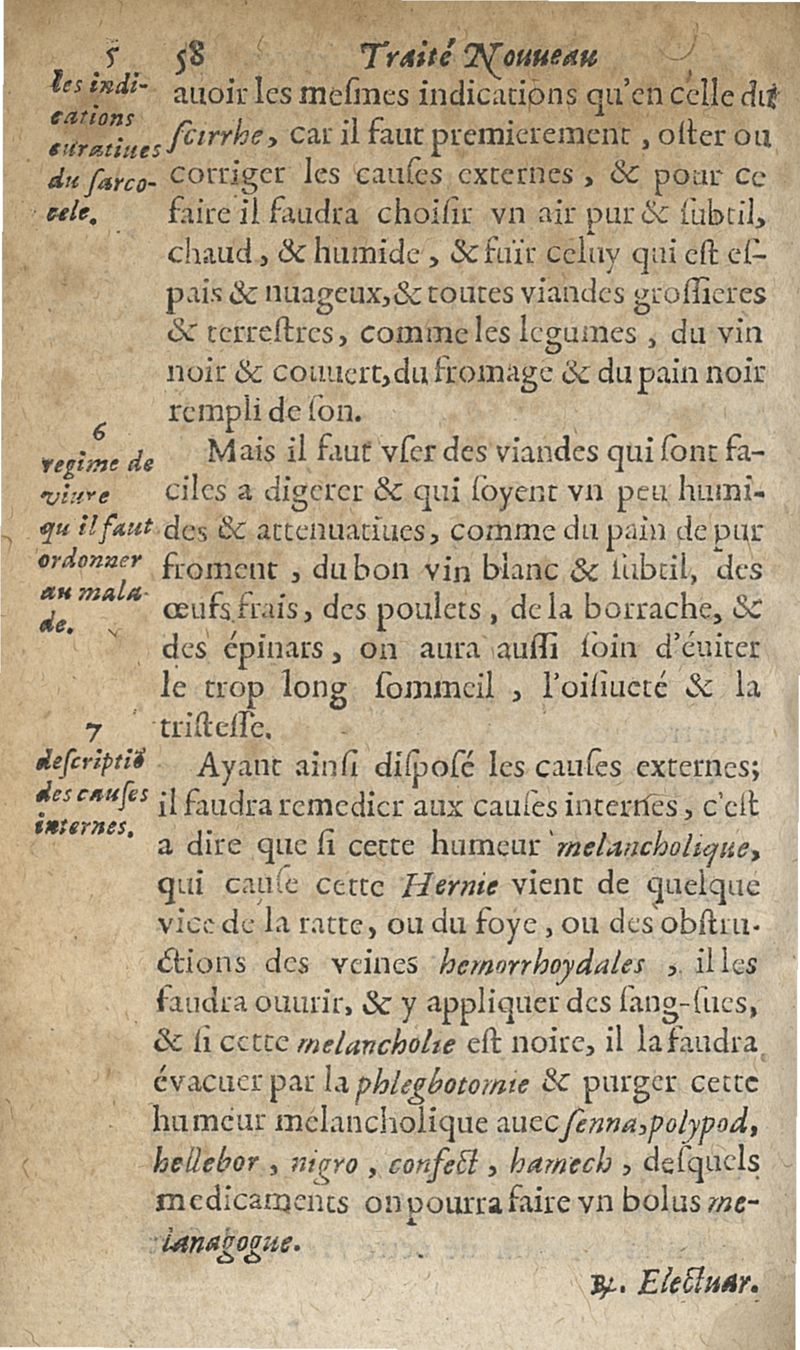 58 Traité Nouueau
5
les indi-
cations
curatiues
du sarco-
cele.
auoir les meſmes indications qu'en celle du
ſcirrhe, car il faut premierement, oſter ou
corriger les cauſes externes, & pour ce
faire il faudra choiſir vn air pur & ſubtil,
chaud, & humide, & fuïr celuy qui eſt eſ-
pais & nuageux, & toutes viandes groſſieres
& terreſtres, comme les legumes, du vin
noir & couuert, du fromage & du pain noir
rempli de ſon.
6
regime de
viure
qu il faut
ordonner
au mala-
de.
Mais il faut vſer des viandes qui ſont fa-
ciles a digerer & qui ſoyent vn peu humi-
des & attenuatiues, comme du pain de pur
froment, du bon vin blanc & ſubtil, des
œufs frais, des poulets, de la borrache, &
des épinars, on aura auſſi ſoin d'éuiter
le trop long ſommeil, l'oiſiueté & la
triſteſſe.
7
deſcriptiõ
des cauſes
internes.
Ayant ainſi diſpoſé les cauſes externes;
il faudra remedier aux cauſes internes, c'eſt
a dire que ſi cette humeur melancholique,
qui cauſe cette Hernie vient de quelque
vice de la ratte, ou du foye, ou des obſtru-
ctions des veines hemorrhoydales, il les
faudra ouurir, & y appliquer des ſang-ſues,
& ſi cette melancholie eſt noire, il la faudra
évacuer par la phlegbotomie & purger cette
humeur mélancholique auec ſenna, polypod,
hellebor, nigro, confect, hamech, deſquels
medicaments on pourra faire vn bolus me-
lanagogue.
℞. Electuar.